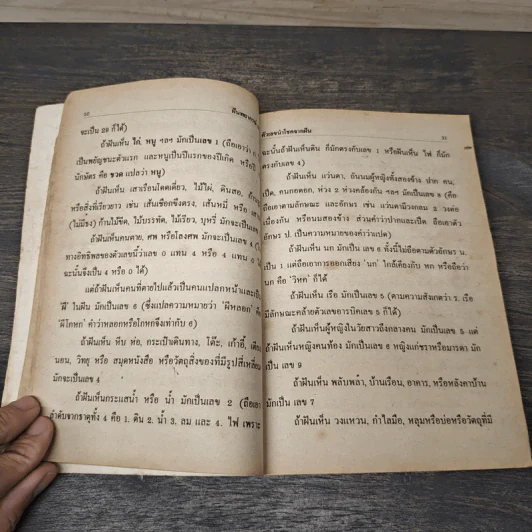 ๒๐
ฝันพยากรณ์
จะเป็น 29 ก็ได้)
ถ้าฝันเห็น ไก่, หนู ฯลฯ มักเป็นเลข 1 (ถือเอาว่า ก
เป็นพยัญชนะตัวแรก และหนูเป็นปีแรกของปีเกิด หรือปี
นักษัตร คือ ชวด แปลว่า หนู)
ถ้าฝันเห็น เสาเรือนโดดเดี่ยว, ไม้ไผ่, ดินสอ, ก้าน
หรือสิ่งที่เรียวยาว เช่น เส้นเชือกขึงตรง, เส้นหมี่ หรือ เส้น
(ไม่มีธง) ก้านไม้ขีด, ไม้บรรทัด, ไม้เรียว, บุหรี่ มักจะเป็นเลข
ถ้าฝันเห็นคนตาย, ศพ หรือโลงศพ มักจะเป็นเลข 4
ทางอิทธิพลของตัวเลขนี้ว่าเลข 0 แทน 4 หรือ 4 แทน 0
ฉะนั้นจึงเป็น 4 หรือ 0 ได้)
แต่ถ้าฝันเห็นคนที่ตายไปแล้วเป็นคนแปลกหน้าและเป็น
'ผี' ในฝัน มักเป็นเลข 6 (ซึ่งแปลความหมายว่า 'ผีหลอก' คือ
'ผีโกหก' คำว่าหลอกหรือโกหกจึงเท่ากับ 6)
ถ้าฝันเห็น หีบ ห่อ, กระเป๋าเดินทาง, โต๊ะ, เก้าอี้, เตียง
นอน, วิทยุ หรือ สมุดหนังสือ หรือวัตถุสิ่งของที่มีรูปสี่เหลี่ยม
มักจะเป็นเลข 4
ถ้าฝันเห็นกระแสน้ำ หรือ น้ำ มักเป็นเลข 2 (ถือเอา
ลำดับจากธาตุทั้ง 4 คือ 1. ดิน 2. น้ำ 3. ลม และ 4. ไฟ เพราะ
ตัวเลขนำโชคจากฝัน
21
ฉะนั้นถ้าฝันเห็นดิน ก็มักตรงกับเลข 1 หรือฝันเห็น ไฟ ก็มัก
ตรงกับเลข 4)
ถ้าฝันเห็น แว่นตา, ถันนมผู้หญิงทั้งสองข้าง ปาก คน,
เป็ด, คนกอดอก, ห่วง 2 ห่วงคล้องกัน ฯลฯ มักเป็นเลข 8 (คือ
ถือเอาตามลักษณะ และอักษร เช่น แว่นตามีวงกลม 2 วงต่อ
เนื่องกัน หรือนมสองข้าง ส่วนคำว่าปากและเป็ด ถือเอาตัว
อักษร ป. เป็นความหมายของคำว่าแปด)
ถ้าฝันเห็น นก มักเป็น เลข 6 ทั้งนี้ไม่ถือตามตัวอักษร น.
เป็น 1 แต่ถือเอาการออกเสียง 'นก' ใกล้เคียงกับ หก หรือถือว่า
นก คือ 'วิหค' ก็ได้
ถ้าฝันเห็น เรือ มักเป็นเลข 5 (ตามความสังเกตว่า ร. เรือ
มีลักษณะคล้ายตัวเลขอารบิคเลข 5 ก็ได้)
ถ้าฝันเห็นผู้หญิงในวัยสาวถึงกลางคน มักเป็นเลข 5 แต่
ถ้าฝันเห็นหญิงคนท้อง มักเป็นเลข 6 หญิงแก่ชราหรือมารดา มัก
เป็น เลข 9
ถ้าฝันเห็น พลับพลา, บ้านเรือน, อาคาร, หรือหลังคาบ้าน
มักเป็น เลข 7
ถ้าฝันเห็น วงแหวน, กำไลมือ, หลุมหรือบ่อหรือวัตถุที่มี